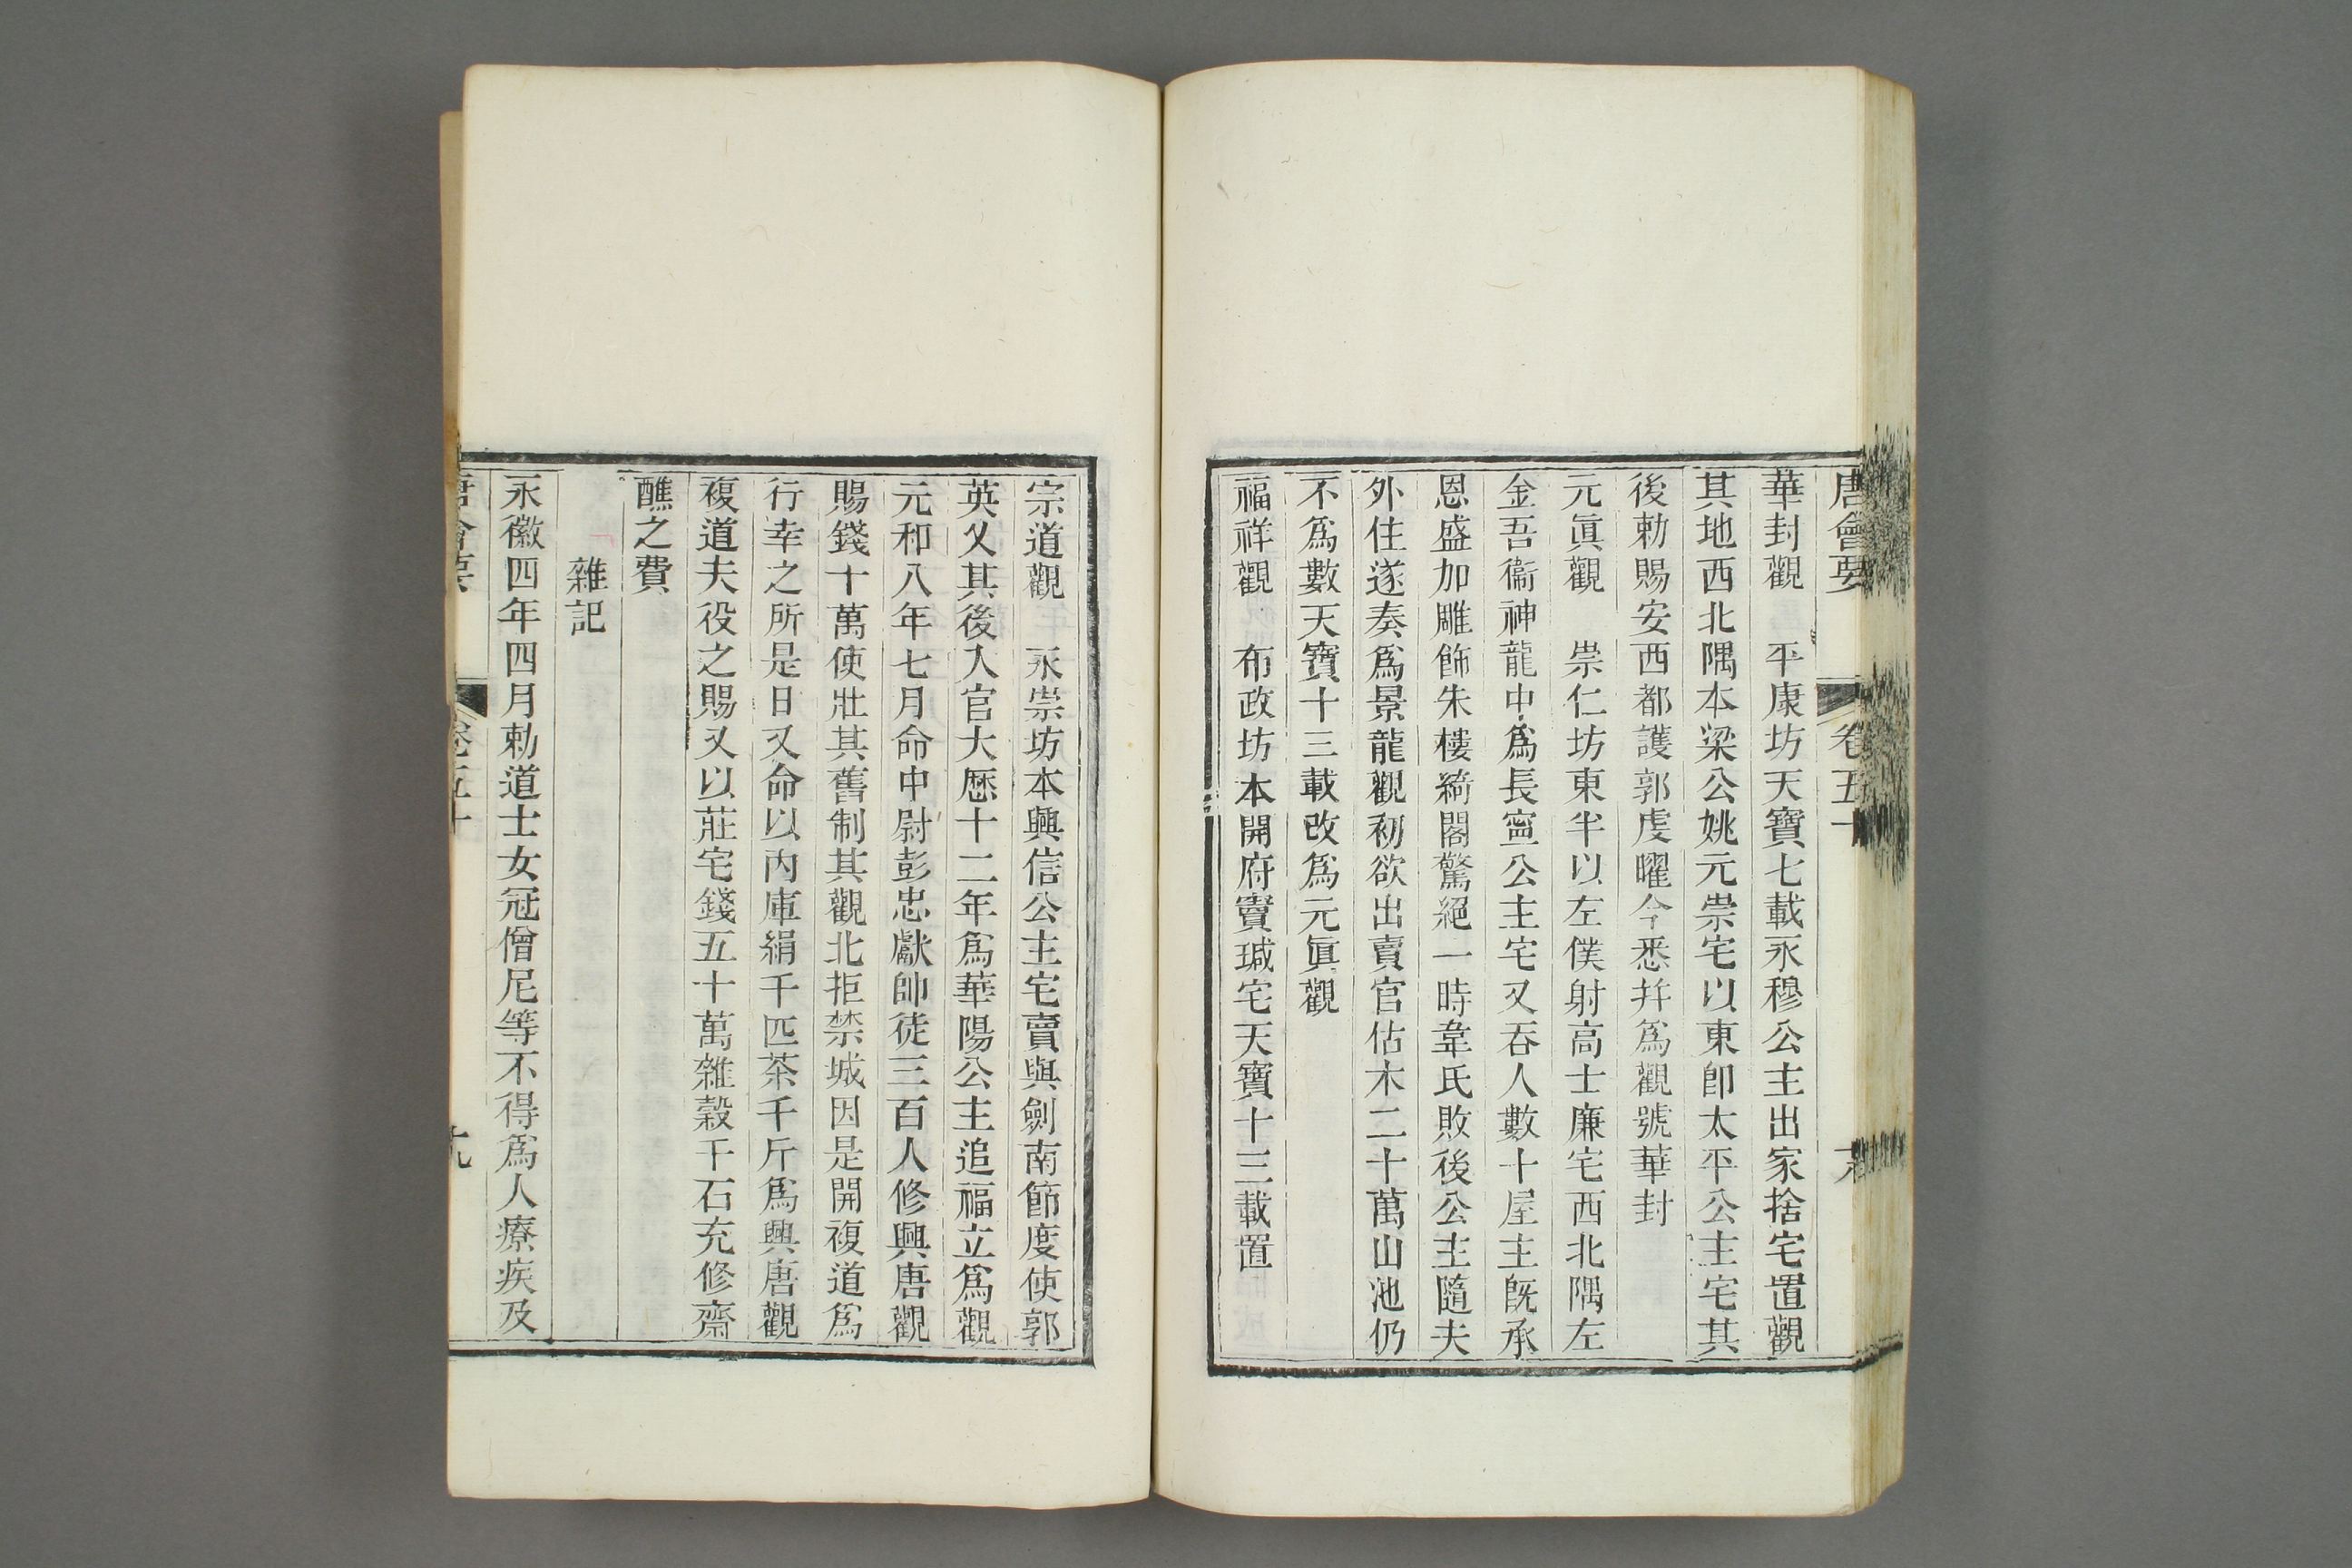 唐會要 卷五十
華封觀 平康坊天寶七載永穆公主出家捨宅置觀
其地西北隅本梁公姚元崇宅以東卽太平公主宅其
後勅賜安西都護郭虔曜今悉幷爲觀號華封
元眞觀 崇仁坊東半以左僕射高士廉宅西北隅左
金吾衞神龍中爲長寧公主宅又吞人數十屋主旣承
恩盛加雕飾朱樓綺閣驚絕一時韋氏敗後公主隨夫
外住遂奏爲景龍觀初欲出賣官估木二十萬山池仍
不爲數天寶十三載改爲元眞觀
福祥觀 布政坊本開府竇瑊宅天寶十三載置
宗道觀 永崇坊本興信公主宅賣與劍南節度使郭
英乂其後入官大歷十二年爲華陽公主追福立爲觀
元和八年七月命中尉彭忠獻帥徒三百人修興唐觀
賜錢十萬使壯其舊制其觀北拒禁城因是開複道爲
行幸之所是日又命以內庫絹千匹茶千斤爲興唐觀
複道夫役之賜又以莊宅錢五十萬雜穀千石充修齋
醮之費
雜記
永徽四年四月勅道士女冠僧尼等不得爲人療疾及
唐會要 卷五十 十九